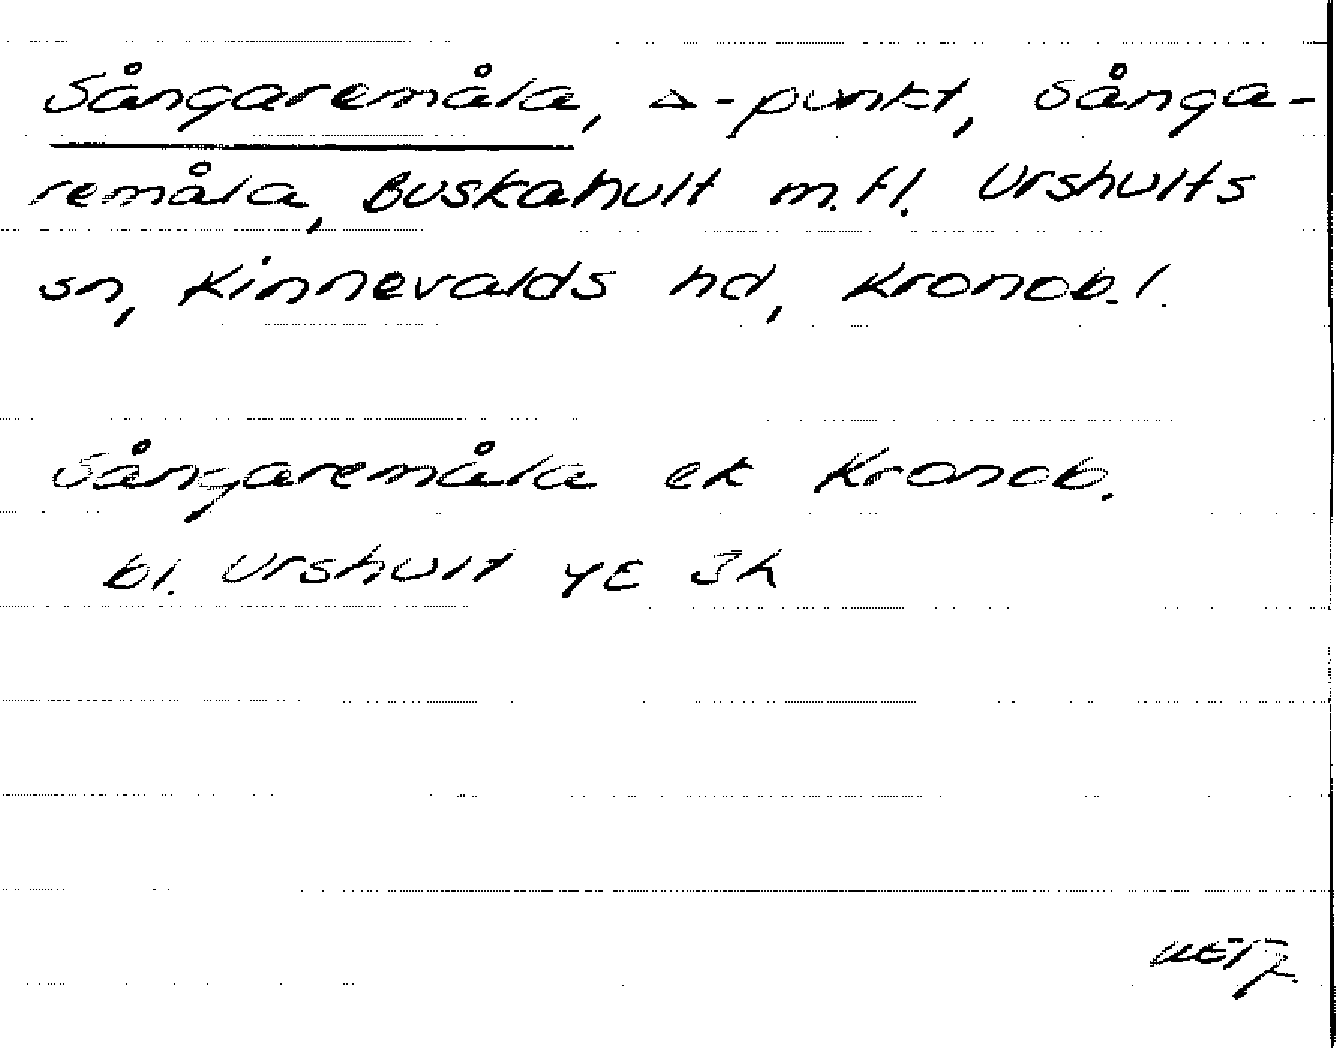 Sångaremåla, △-punkt, Sånga-
remåla, Buskahult m.fl. Urshults
sn, Kinnevalds hd, Kronob. l.
Sångaremåla ek Kronob.
bl. Urshult YE 3h